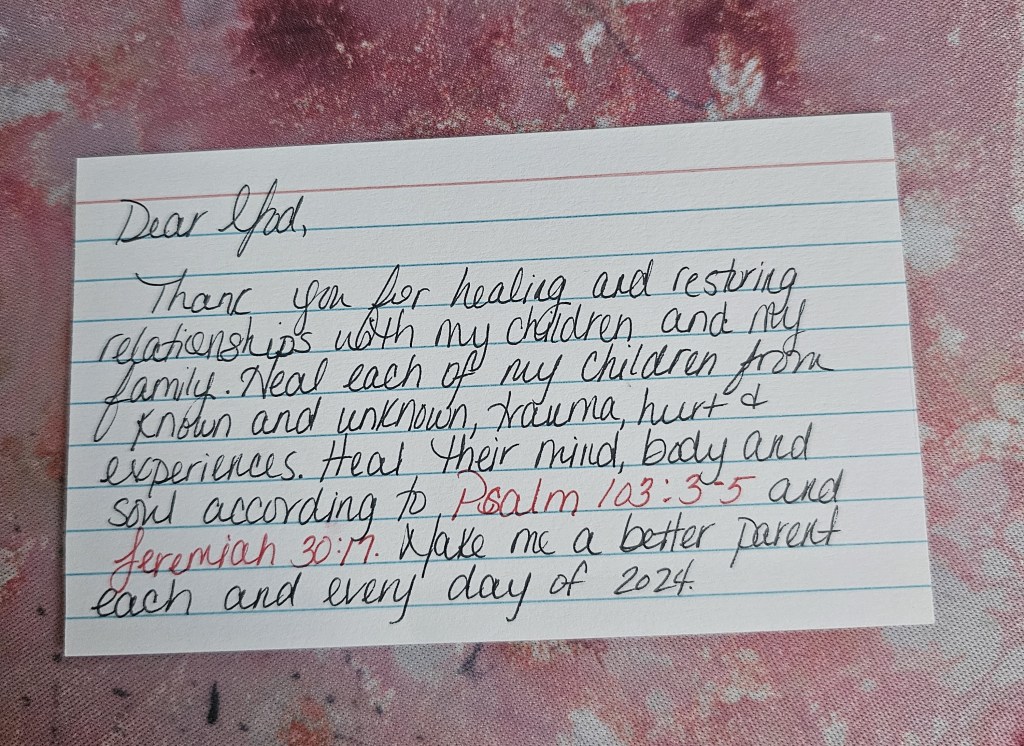 Dear God,
Thank you for healing and restoring
relationships with my children and my
family. Heal each of my children from
known and unknown, trauma, hurt &
experiences. Heal their mind, body and
soul according to Psalm 103:3-5 and
Jeremiah 30:17. Make me a better parent
each and every day of 2024.